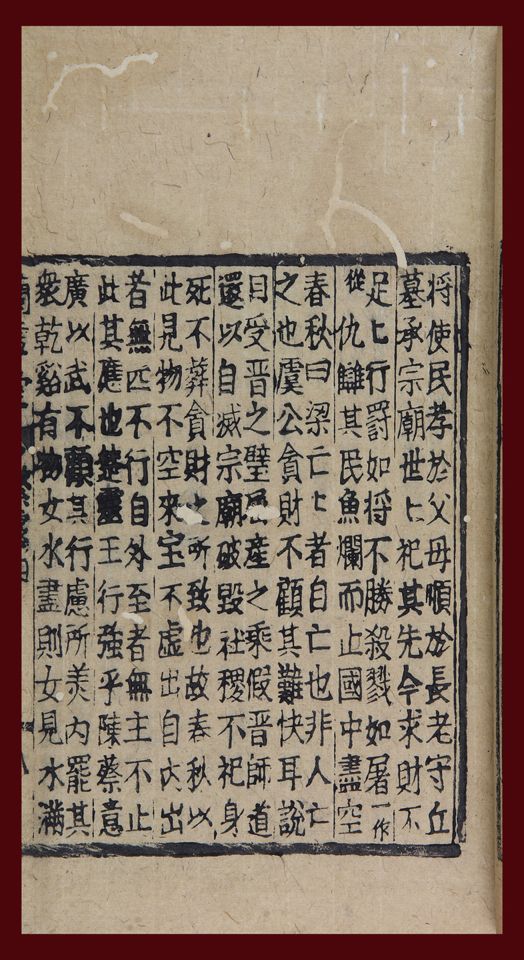 將使民孝於父母順於長老守丘
墓承宗廟世匕祀其先今求財不
足匕行罰如將不勝殺戮如屠一作
從仇讎其民魚爛而止國中盡空
春秋曰梁亡匕者自亡也非人亡
之也虞公貪財不顧其難快耳說
目受晉之璧屈產之乘假晉師道
還以自滅宗廟破毀社稷不祀身
死不葬貪財之所致也故春秋以
此見物不空來宝不虛出自内出
者無匹不行自外至者無主不止
此其應也楚靈王行強乎陳蔡意
廣以武不顧其行慮所羡内罷其
衆乾谿有物女水盡則女見水滿